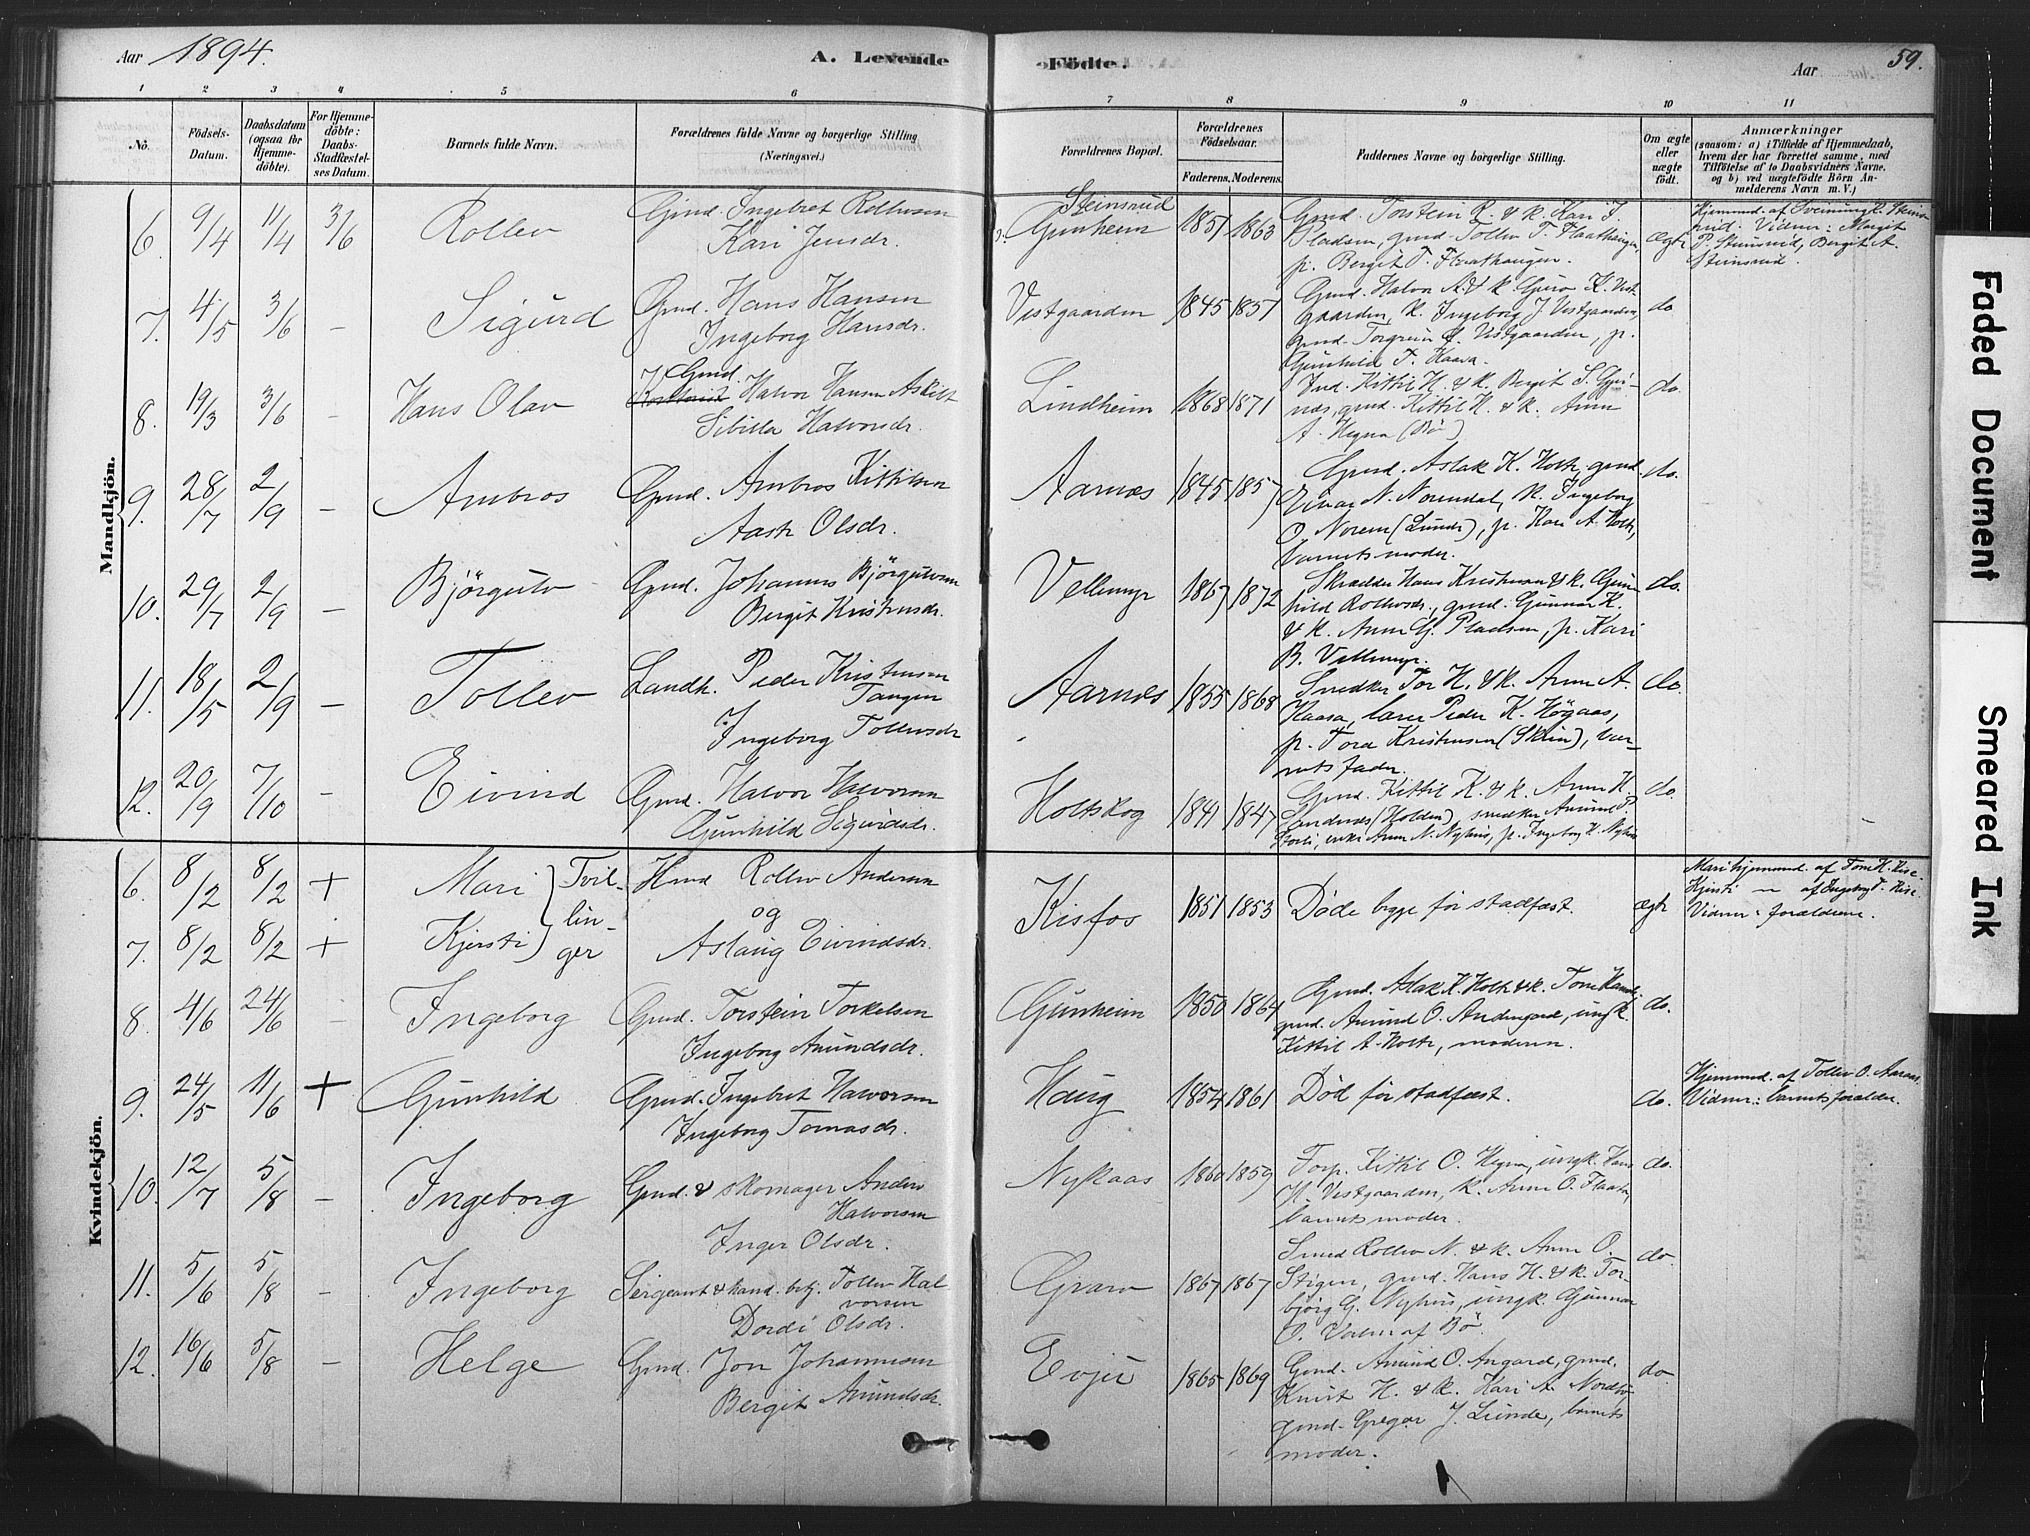 Aar 1894.
A. Levende Födte.
Aar
59.
1 2 3 4 5 6 7 8 9 10 11
No.
Födsels-Datum.
Daabsdatum (ogsaa for Hjemme-döbte).
For Hjemme-döbte: Daabs-Stadfæstel-ses Datum.
Barnets fulde Navn.
Forældrenes fulde Navne og borgerlige Stilling (Næringsvei.)
Forældrenes Bopæl.
Forældrenes Födselsaar.
Faderens. Moderens.
Faddernes Navne og borgerlige Stilling.
Om ægte eller uægte födt.
Anmærkninger
(saasom: a) i Tilfælde af Hjemmedaab,
hvem der har forrettet samme, med
Tilföielse af to Daabsvidners Navne.
og b) ved uægtefödte Börn An-
melderens Navn m. V.)
Mandkjön.
6. 9/4 11/4 3/6 Rollev
Gmd. Ingebret Rollevsen
Kari Jensdr.
Steinsrud
Gunheim 1857 1863
Gmd. Torstein R. & k. Kari J.
Pladsen, gmd. Tollev T. Flaathaugen,
p. Berget T. Flaathaugen.
ægte
Hjemmed. af Sveinung K. Steins-
rud. Vidner: Margit
P. Steinsrud, Bergit A.
Steinsrud.
7. 4/5 3/6 – Sigurd
Gmd. Hans Hansen
Ingeborg Hansdr.
Vestgaarden 1845 1857
Gmd. Halvor A. & k. Guro K. Vest-
gaarden, k. Ingeborg J. Vestgaarden,
gmd. Torgrim Vestgaarden, p.
Gunhild T. Haava.
do.
8. 19/3 3/6 – Hans Olav
Gmd.
Halvor Hansen Askilt
Sibilla Halvorsdr.
Lindheim 1868 1871
Ind. Kittil H. & k. Bergit S. Gjri-
næs, gmd. Kittil H. & k. Anne
A. Hegna (Bø)
do.
9. 28/7 2/9 – Ambros
Gmd. Ambros Kittilsen
Aaste Olsdr.
Aarnæs 1845 1857
Gmd. Aslak K. Holte, gmd.
Einar N. Norendal, k. Ingeborg
O. Norem (Lunde), p. Kari A. Holte,
barnets moder.
do.
10. 29/7 2/9 – Björgulv
Gmd. Johannes Björgulvsen
Bergit Kristensdr.
Vellemyr 1867 1872
Skrædder Hans Kristensen & k. Gun-
hild Rollevsdr., gmd. Gunnar K.
& k. Anne G. Pladsen, p. Kari
B. Vellemyr.
do.
11. 18/5 2/9 – Tollev
Landh. Peder Kristensen
Tangen
Ingeborg Tollevsdr
Aarnæs 1855 1868
Snedker Tor H. & k. Anne A.
Haasa, lærer Peder K. Høgaas,
p. Tora Kristensen (Skien), bar-
nets fader.
do.
12. 20/9 7/10 – Eivind
Gmd. Halvor Halvorsen
Gunhild Sigurdsdr.
Holtskog 1841 1847
Gmd. Kittil K. & k. Anne K.
Sandenæs (Holden), snedker Amund P.
enke Anne N. Nyhus, p. Ingeborg H. Nyhus
do.
Kvindekjön.
6. 8/2 8/2 + Mari
7. 8/2 8/2 + Kjersti
Tvil-
lin-
ger
Hmd Rollev Andersen
og
Aslaug Eivindsdr.
Kisfos 1851 1853
Døde begge før stadfæst.
ægte
Mari hjemmed. af Tone K. Kise.
Kjersti — af Ingeborg T. Kise.
Vidner: forældrene.
8. 4/6 24/6 – Ingeborg
Gmd. Torstein Torkelsen
Ingeborg Amundsdr.
Gunheim 1850 1864
Gmd. Aslak K. Holte & k. Tone Hansdr.,
gmd. Amund O. Andersgard, ungk.
Kittil A. Holte, moderen.
do.
9. 24/5 11/6 + Gunhild
Gmd. Ingebret Halvorsen
Ingeborg Tomasdr.
Haug 1854 1861
Død før stadfæst.
do.
Hjemmed. af Tollev O. Aaraas.
Vidner: barnets forældre.
10. 12/7 5/8 – Ingeborg
Gmd. & skomager Anders
Halvorsen
Inger Olsdr.
Nykaas 1860 1859
Torp. Kittil O. Hegna, ungk. Hans
H. Vestgaarden, k. Anne O. Flaata,
barnets moder.
do.
11. 5/6 5/8 – Ingeborg
Sergeant & hand. betj. Tollev Hal
vorsen
Dordi Olsdr.
Grava 1867 1867
Smed Rollev N. & k. Anne O.
Stigen, gmd. Hans H. & k. Tor-
björg G. Nyhus, ungk. Gunnar
O. Valen af Bø.
do.
12. 16/6 5/8 – Helge
Gmd. Jon Johannesen
Bergit Amundsdr.
Evju 1865 1869
Gmd. Amund O. Angard, gmd.
Knut H. & k. Kari A. Nordbø,
gmd. Gregar J. Lunde, barnets
moder.
do.
Faded Document
Smeared Ink